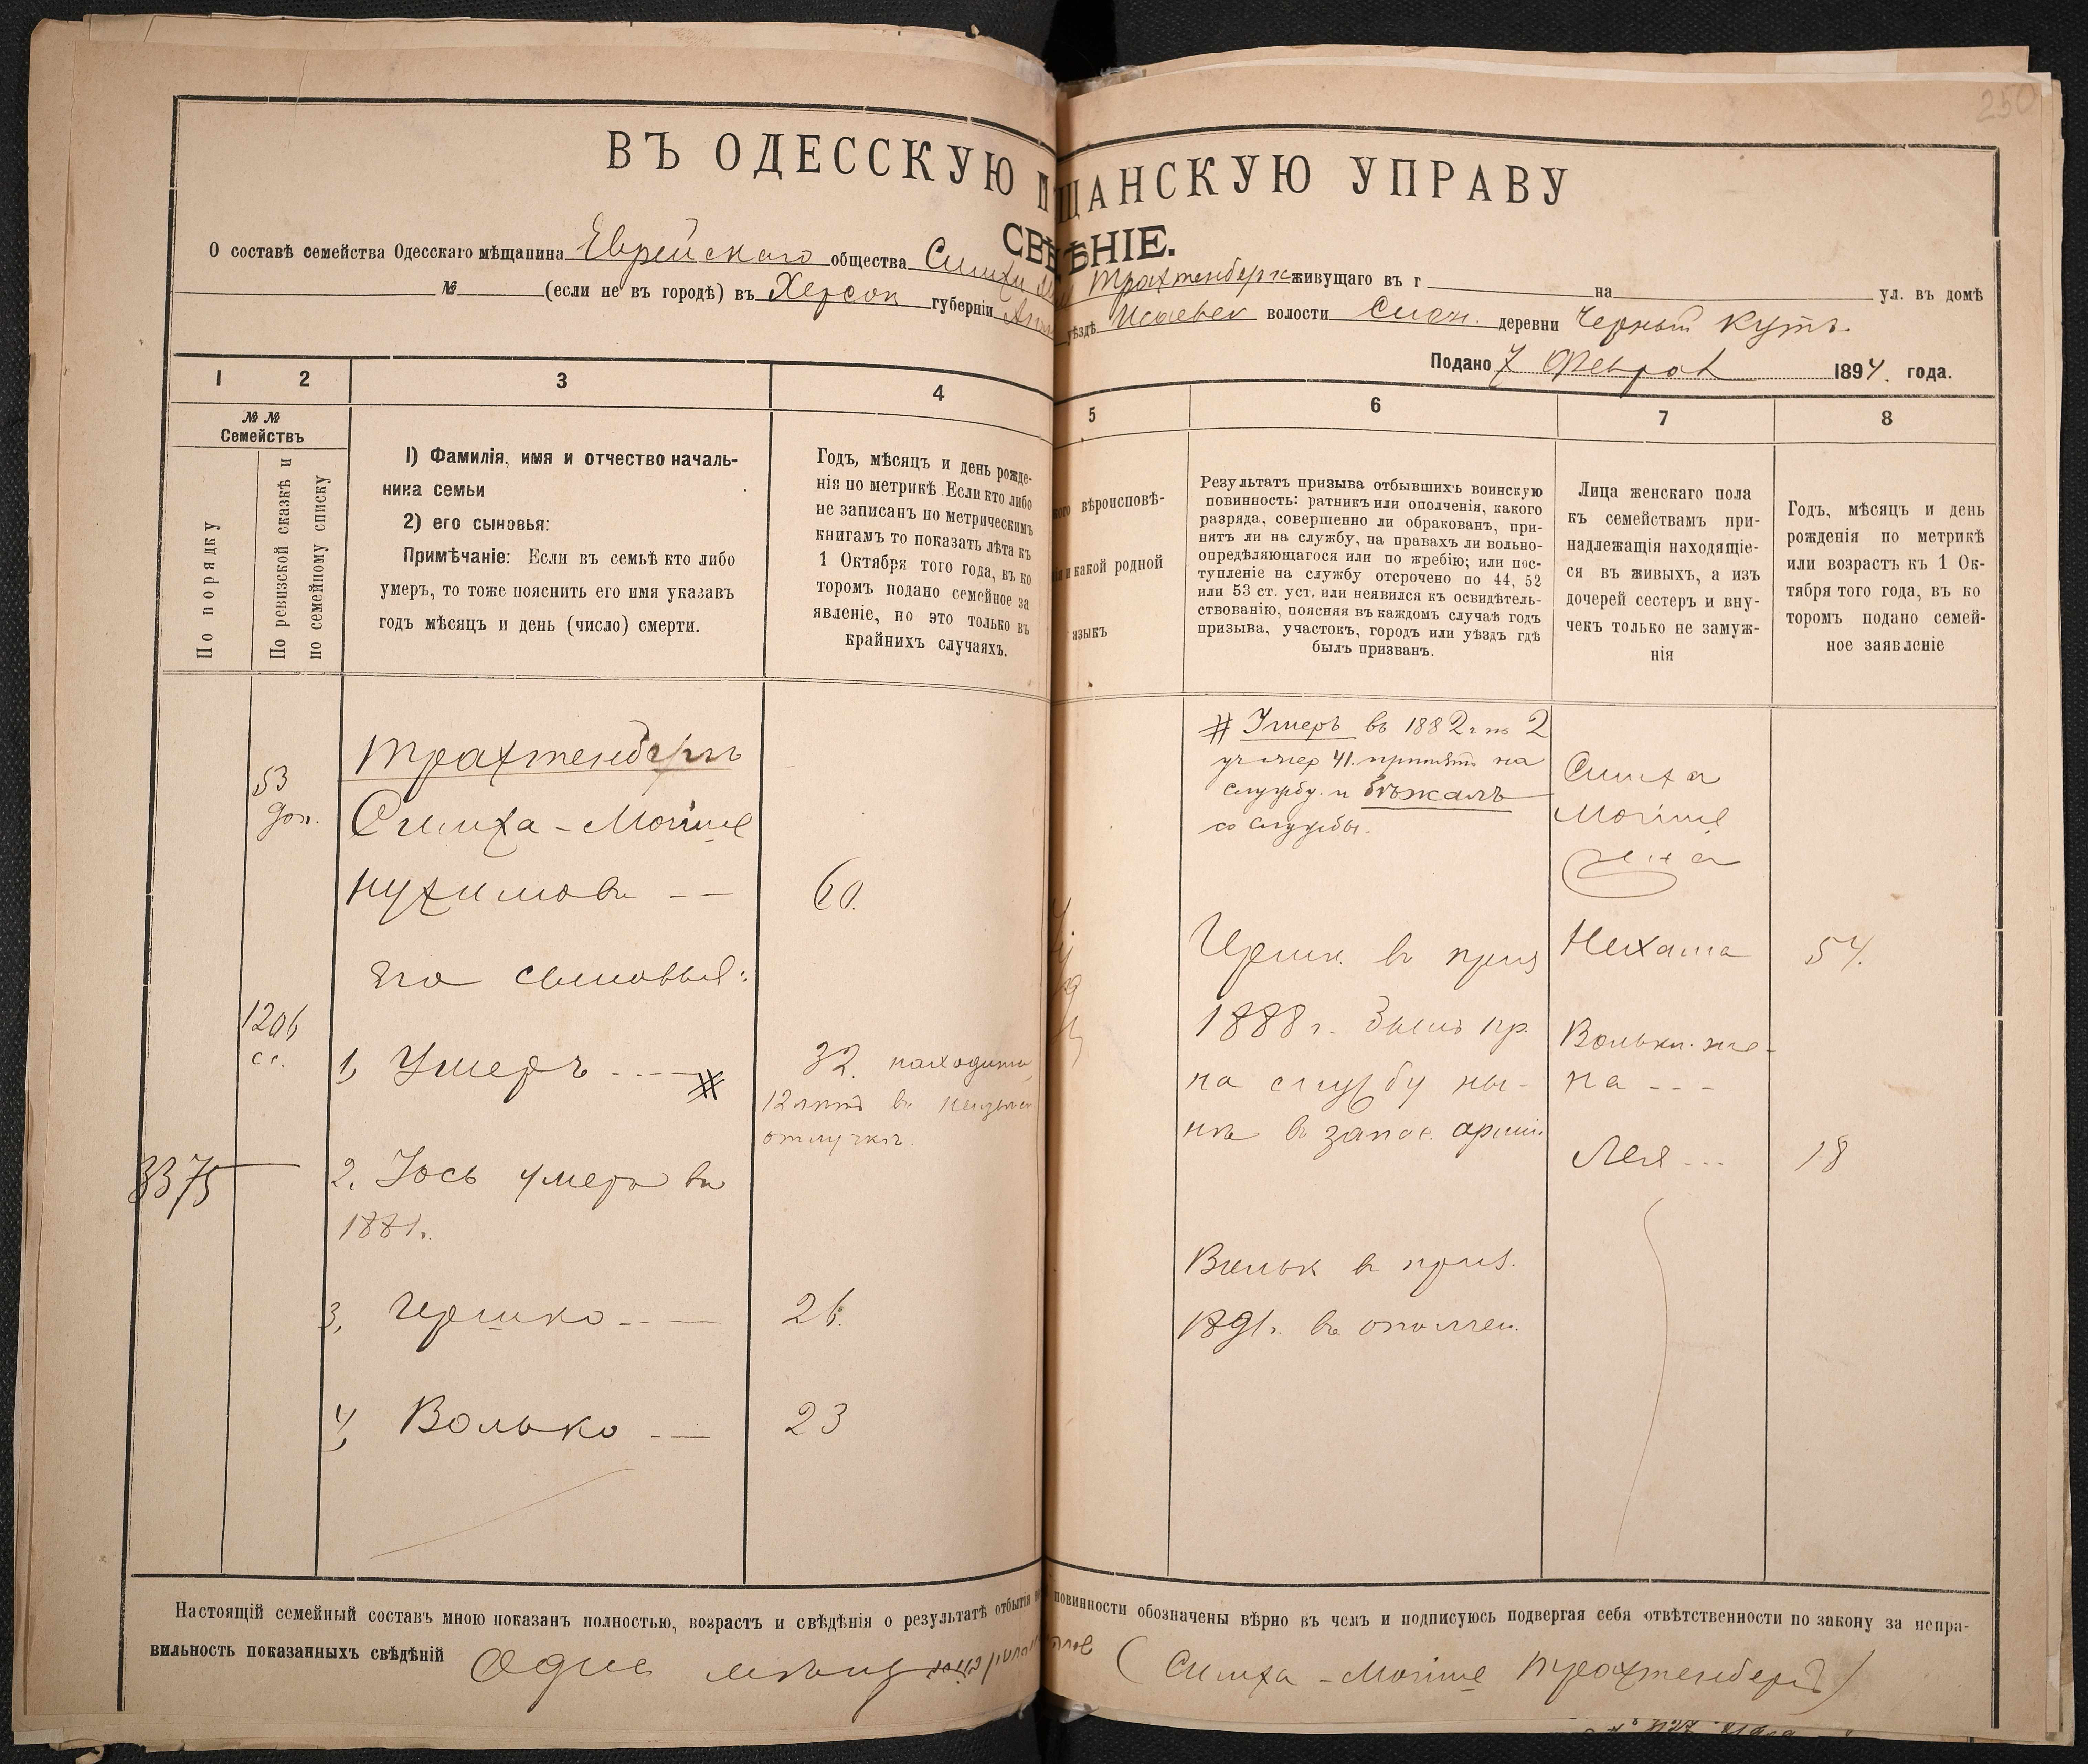 250
ВЪ ОДЕССКУЮ ЩАНСКУЮ УПРАВУ
СВѢДѢНІЕ.
О составѣ семейства Одесскаго мѣщанина Еврейскаго общества Симхи Трахтенберга живущаго въ г на ул. въ домѣ
№ (если не въ городѣ) въ Херсон губерніи уѣздѣ Исаевск волости деревни Черный Кутъ
Подано 7 Феврал 1894. года.
1 2 3 4 5 6 7 8
№№
Семействъ
По порядку
По ревизской сказкѣ и
по семейному списку
1) Фамилія, имя и отчество началь-
ника семьи
2) его сыновья:
Примѣчаніе: Если въ семьѣ кто либо
умеръ, то тоже пояснить его имя указавъ
годъ мѣсяцъ и день (число) смерти.
Годъ, мѣсяцъ и день рожде-
нія по метрикѣ Если кто либо
не записанъ по метрическимъ
книгамъ то показать лѣта къ
1 Октября того года, въ ко
торомъ подано семейное за
явленіе, но это только въ
крайнихъ случаяхъ.
вѣроисповѣ-
и какой родной
языкъ
Результатъ призыва отбывшихъ воинскую
повинность: ратникъ или ополченія, какого
разряда, совершенно ли обракованъ, при-
нятъ ли на службу, на правахъ ли вольно-
опредѣляющагося или по жребію; или пос-
тупленіе на службу отсрочено по 44, 52
или 53 ст. уст. или неявился къ освидѣтель-
ствованію, поясняя въ каждомъ случаѣ годъ
призыва, участокъ, городъ или уѣздъ гдѣ
былъ призванъ.
Лица женскаго пола
къ семействамъ при-
надлежащія находящіе-
ся въ живыхъ, а изъ
дочерей сестеръ и вну-
чекъ только не замуж-
нія
Годъ, мѣсяцъ и день
рожденія по метрикѣ
или возрастъ къ 1 Ок-
тября того года, въ ко
торомъ подано семей-
ное заявленіе
53
доп.
Трахтенбергъ
Симха-Мойше
Нухимовъ -- 60.
Его сыновья:
1206
сс.
1, Умеръ ---- # 32. находит
12 лѣтъ въ
отлучкѣ.
3375
2. Іось умеръ въ
1881г.
3, Гершко --- 26.
4, Волько -- 23
# Умеръ въ 1882 г по 2
уч жер 41. принятъ на
службу и бѣжалъ
со службы.
Герш. въ приз
1888 г. былъ пр.
на службу ны-
нѣ въ запас. арміи
Вольк в приз.
1891г. въ ополчен.
Симха
Мойше
жена
Нехама 54.
Вольки же-
на ---
Лея --- 18
Настоящій семейный составъ мною показанъ полностью, возрастъ и свѣдѣнія о результатѣ отбытія повинности обозначены вѣрно въ чемъ и подписуюсь подвергая себя отвѣтственности по закону за непра-
вильность показанныхъ свѣдѣній (Симха-Мойше Трахтенбергъ)